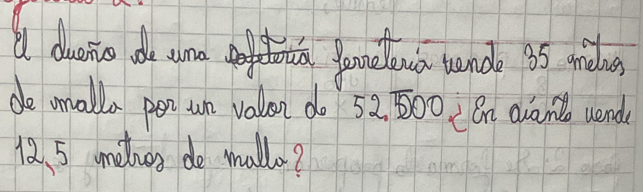 El dueño de una ferretería vende 35 metros
de malla por un valor de 52.500 ¿En cuánto vende
12,5 metros de malla?